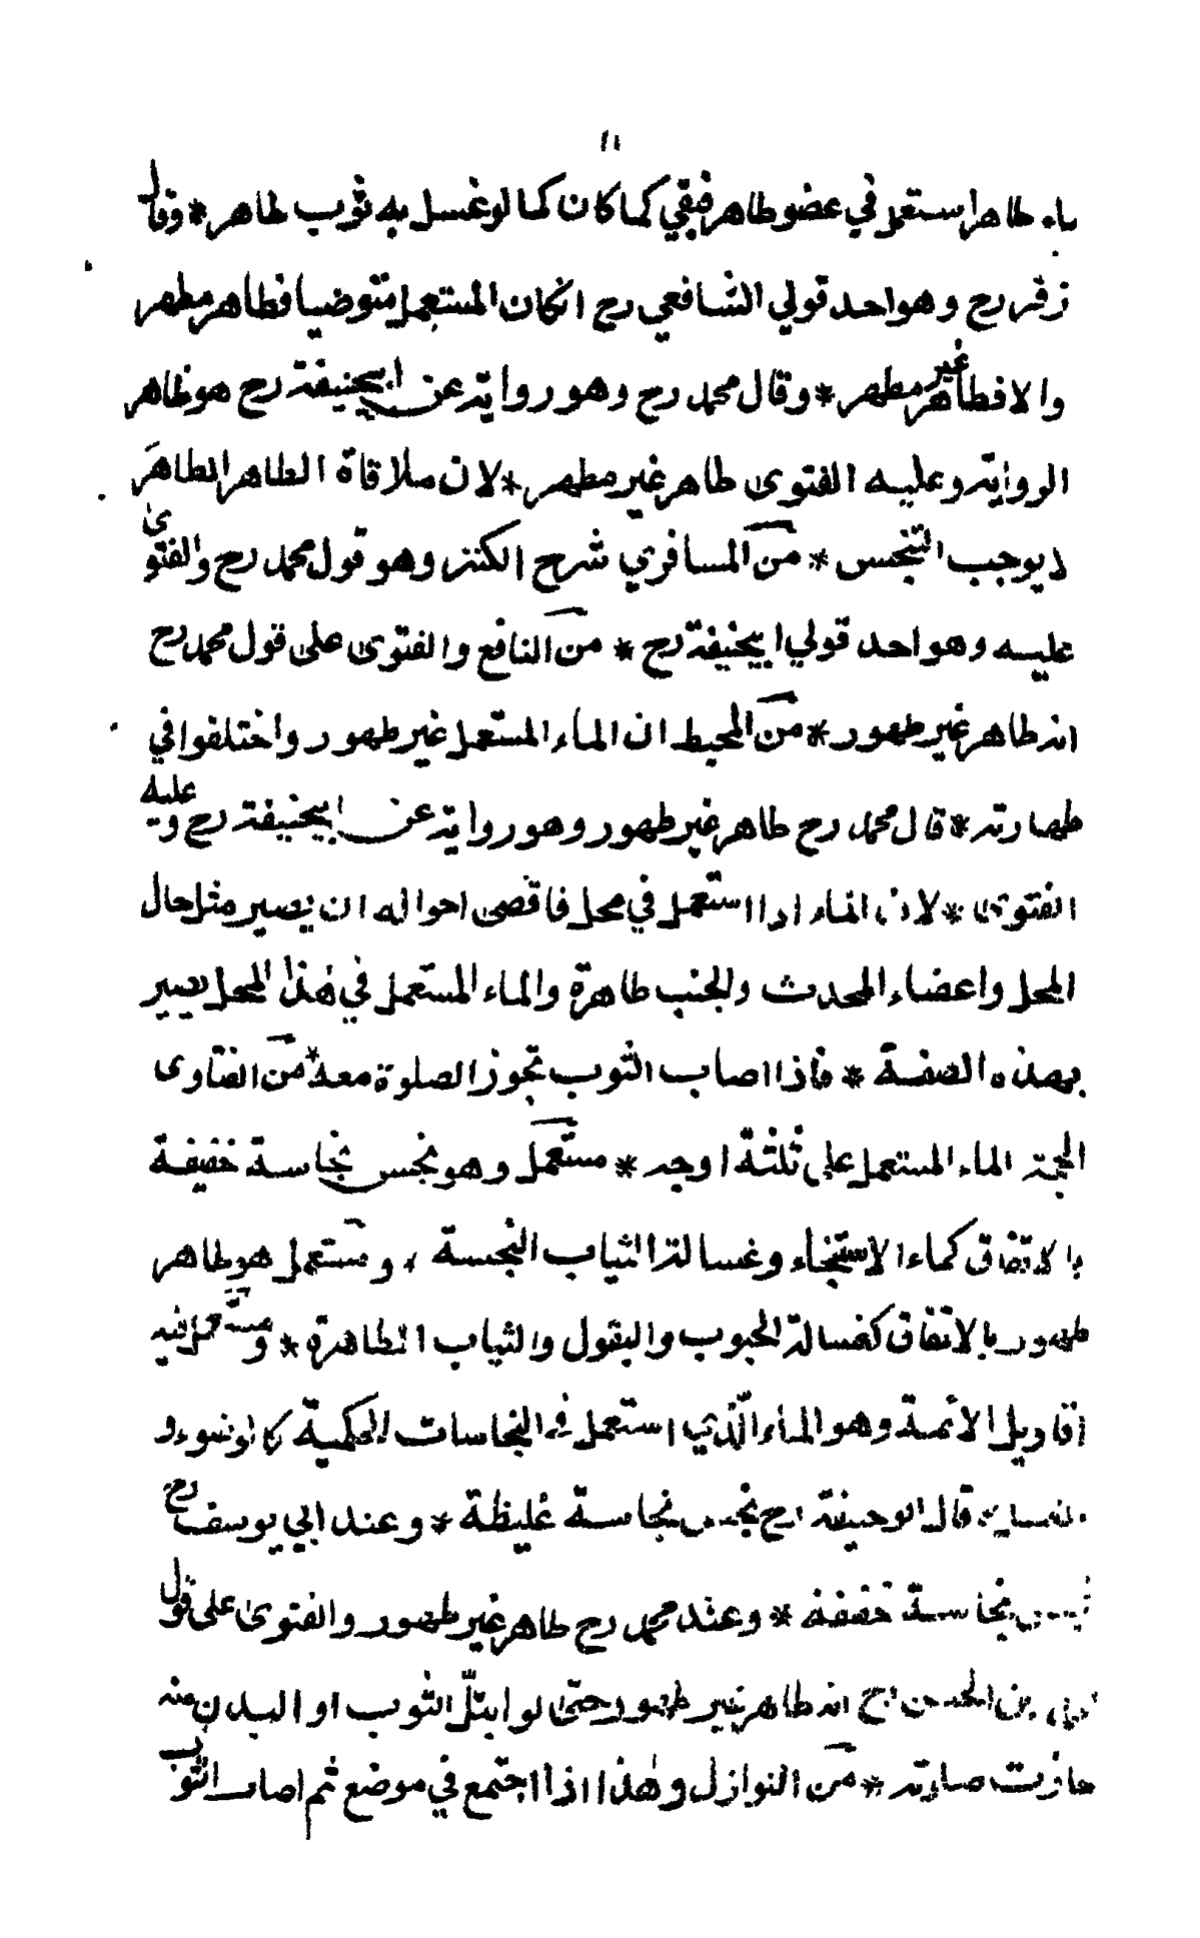 ١١
ماء طاهر استعمل في عضو طاهر فبقي كما كان كما لو غسل به ثوب طاهر * وقال
زفر رح وهو احد قولي الشافعي رح انكان المستعمل متوضيا فطاهر مطهر
والا فطاهر غير مطهر * وقال محمد رح وهو رواية عن ابيحنيفة رح هو ظاهر
الرواية وعليه الفتوى طاهر غير مطهر * لان ملاقاة الطاهر الطاهر
لا يوجب التنجس * من المسافري شرح الكنز وهو قول محمد رح والفتوى
عليه وهو احد قولي ابيحنيفة رح * من النافع والفتوى على قول محمد رح
انه طاهر غير طهور * من المحيط ان الماء المستعمل غير طهور واختلفوا في
طهارته * قال محمد رح طاهر غير طهور وهو رواية عن ابيحنيفة رح وعليه
الفتوى * لان الماء اذا استعمل في محل فاقصى احواله ان يصير مثل حال
المحل واعضاء المحدث والجنب طاهرة والماء المستعمل في هذا المحل يصير
بهذه الصفة * فاذا اصاب الثوب تجوز الصلوة معه * من الفتاوى
الحجة الماء المستعمل على ثلثة اوجه * مستعمل وهو نجس نجاسة خفيفة
بالاتفاق كماء الاستنجاء وغسالة الثياب النجسة ، ومستعمل هو طاهر
طهور بالاتفاق كغسالة الحبوب والبقول والثياب الطاهرة * ومستعمل فيه
اقاويل الائمة وهو الماء الذي استعمل في النجاسات الحكمية كالوضوء و
الغسل * قال ابو حنيفة رح نجس نجاسة غليظة * وعند ابي يوسف رح
نجس نجاسة خفيفة * وعند محمد رح طاهر غير طهور والفتوى على قول
محمد بن الحسن رح انه طاهر غير طهور حتى لو ابتل الثوب او البدن منه
جازت صلوته * من النوازل وهذا اذا اجتمع في موضع ثم اصاب الثوب